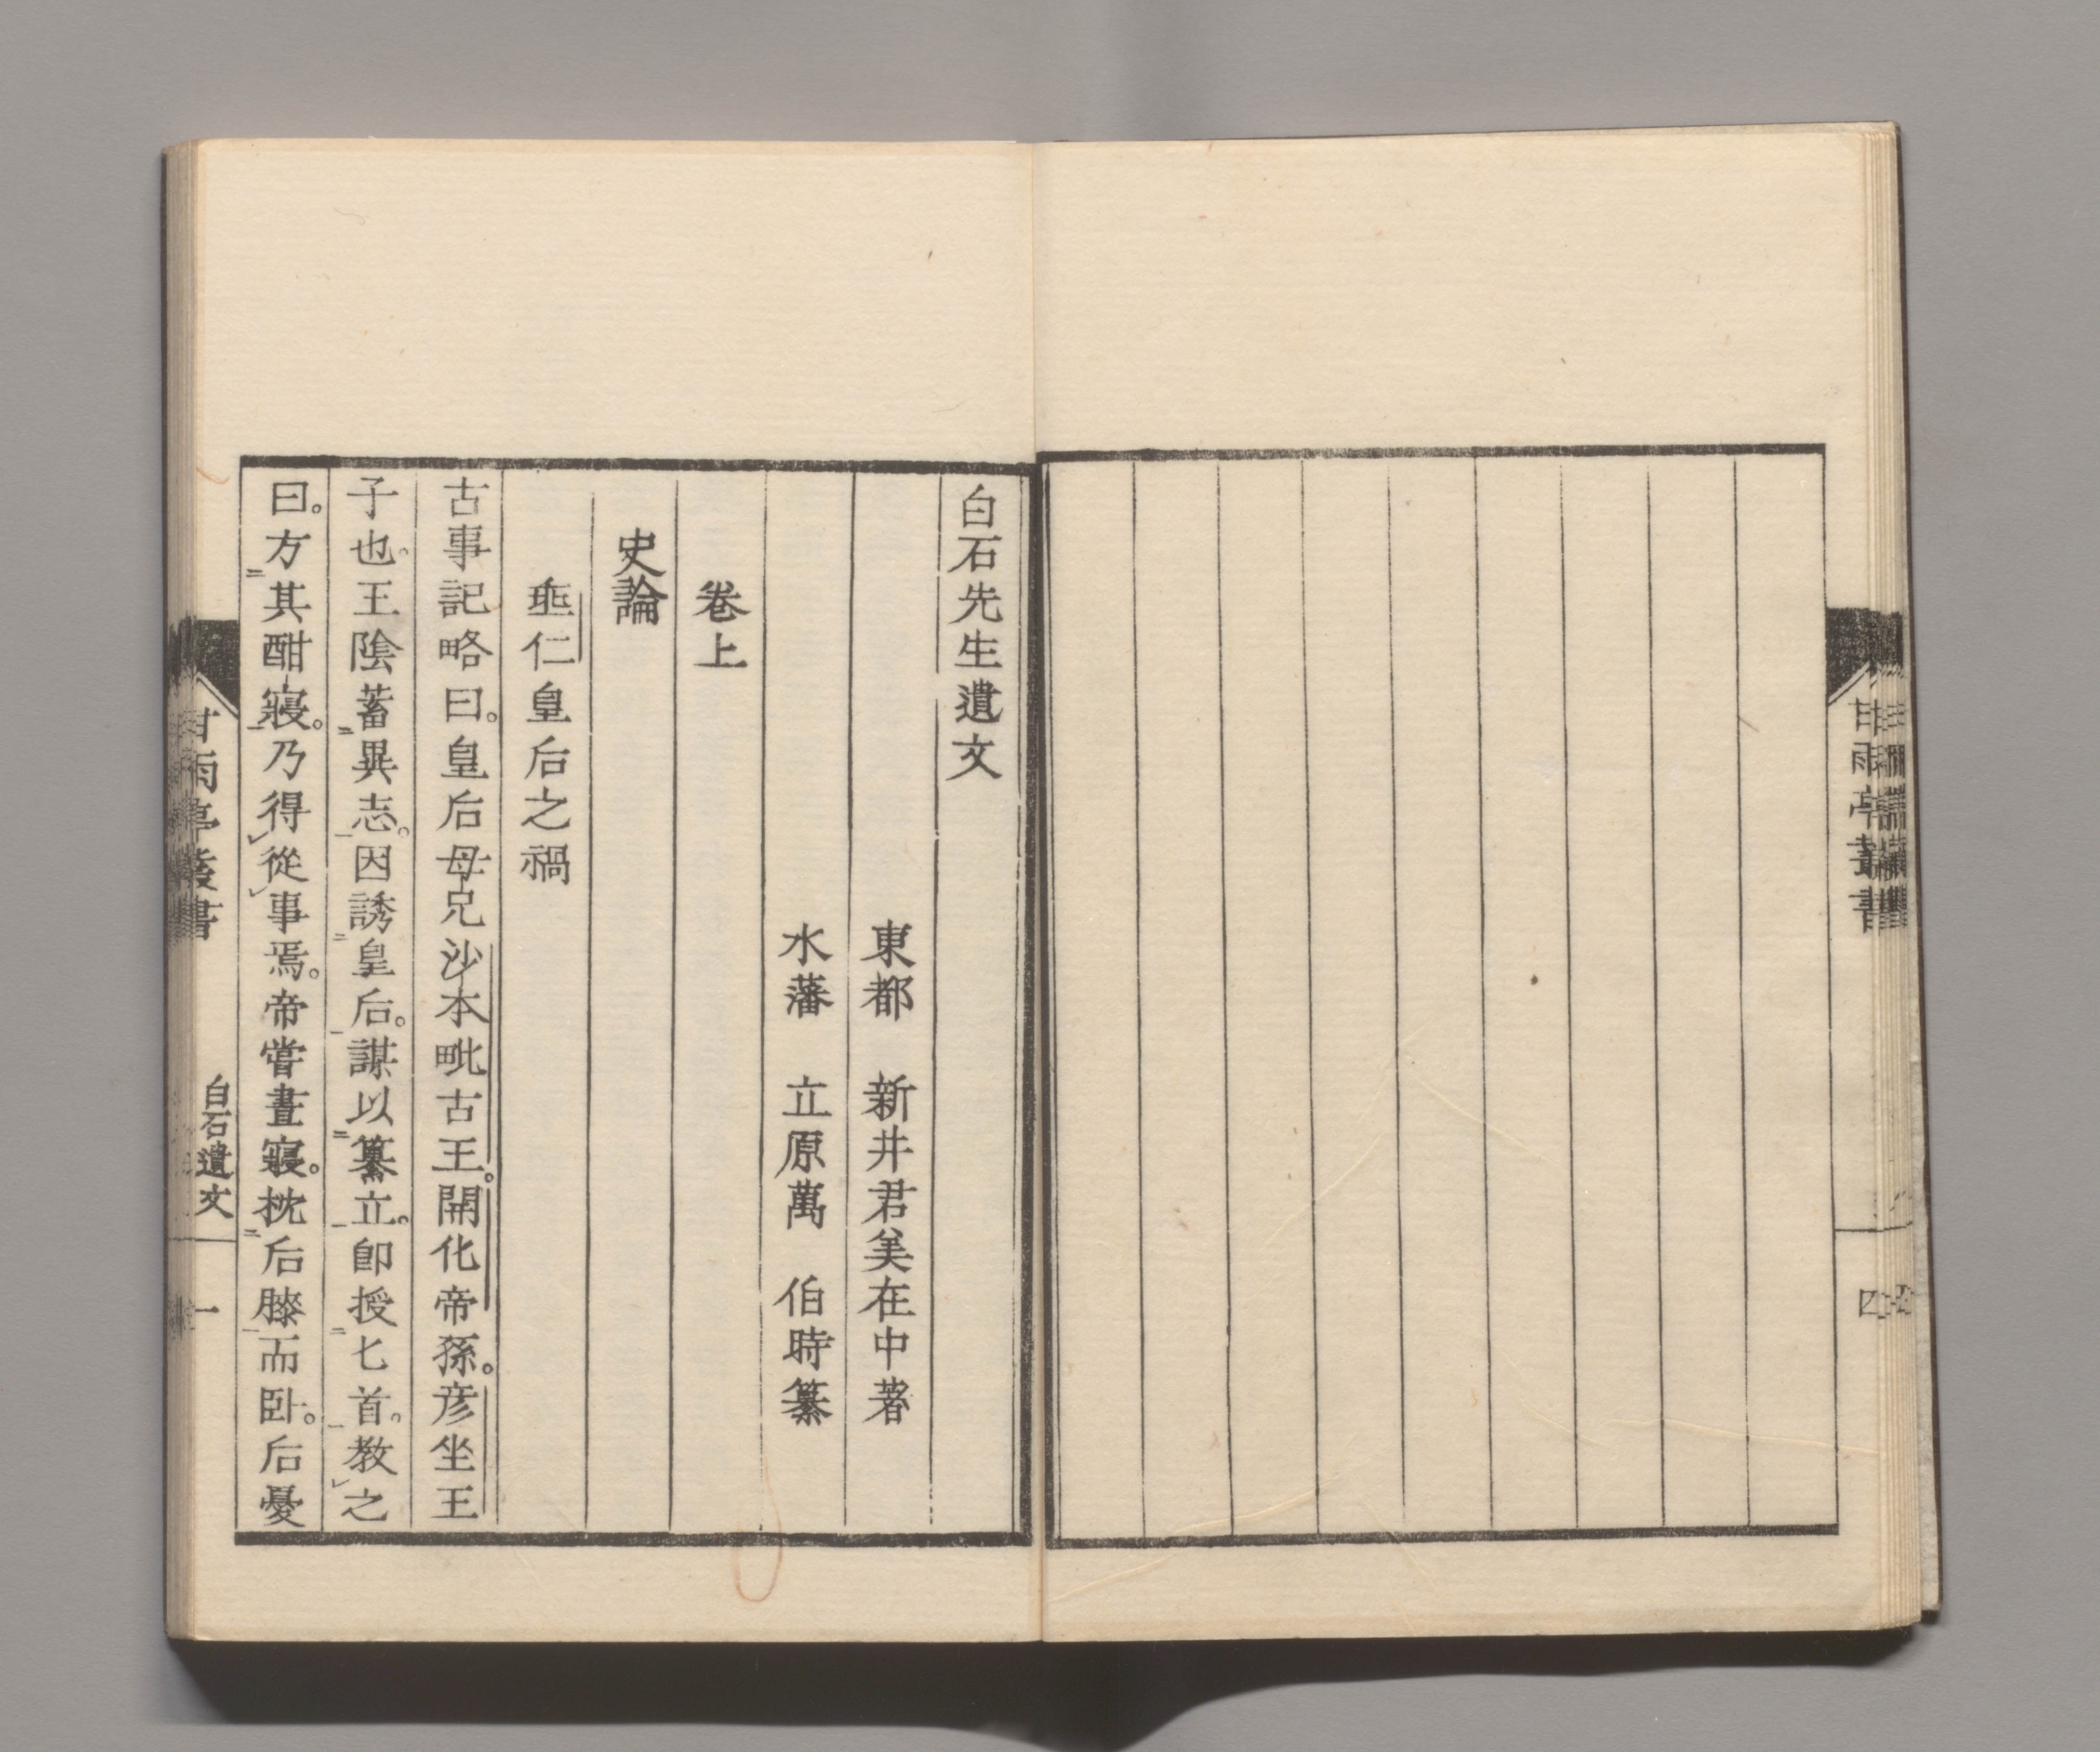 甘雨亭叢書
四
白石先生遺文
東都　新井君美在中著
水藩　立原萬　伯時纂
卷上
史論
垂仁皇后之禍
古事記略曰。皇后母兄沙本毗古王。開化帝孫。彦坐王
子也。王陰蓄異志。因誘皇后。謀以纂立。卽授匕首。教之
曰。方其酣寢。乃得從事焉。帝嘗晝寢。枕后膝而臥。后憂
甘雨亭叢書
白石遺文
一